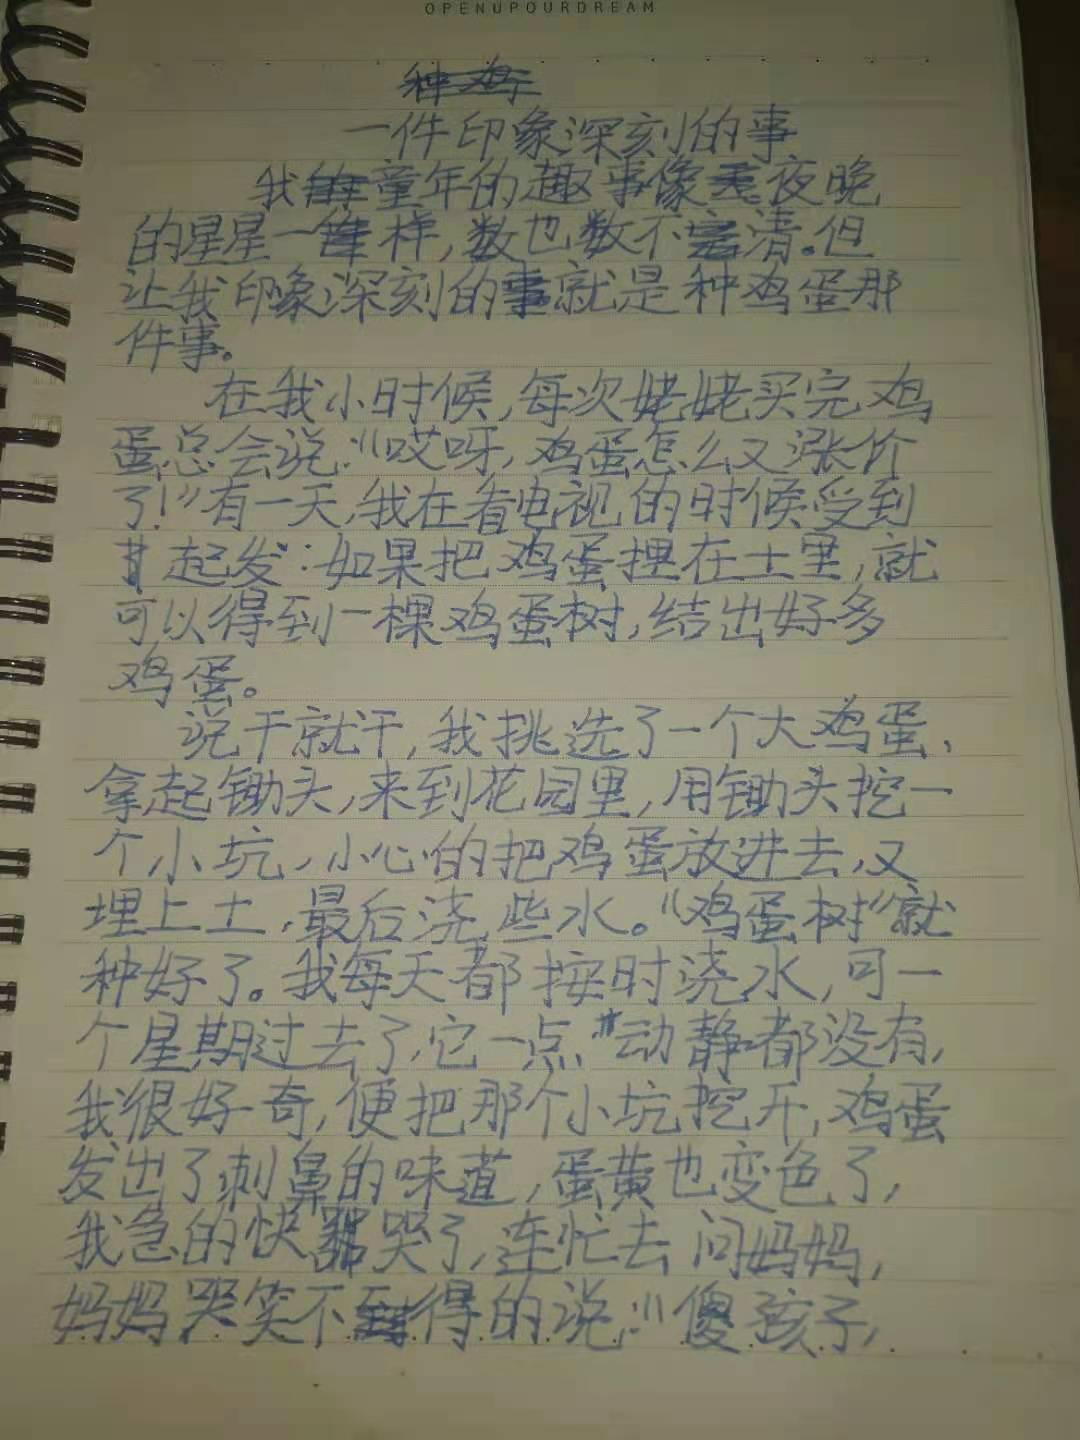 OPENUPOURDREAM
一件印象深刻的事
我童年的趣事像夜晚
的星星一样,数也数不清。但
让我印象深刻的事就是种鸡蛋那
件事。
在我小时候,每次姥姥买完鸡
蛋总会说:“哎呀,鸡蛋怎么又涨价
了!”有一天,我在看电视的时候受到
起发:如果把鸡蛋埋在土里,就
可以得到一棵鸡蛋树,结出好多
鸡蛋。
说干就干,我挑选了一个大鸡蛋、
拿起锄头,来到花园里,用锄头挖一
个小坑,小心的把鸡蛋放进去,又
埋上土,最后浇些水。“鸡蛋树”就
种好了。我每天都按时浇水,可一
个星期过去了,它一点动静都没有,
我很好奇,便把那个小坑挖开,鸡蛋
发出了刺鼻的味道,蛋黄也变色了,
我急的快哭了,连忙去问妈妈,
妈妈哭笑不得的说:“傻孩子,